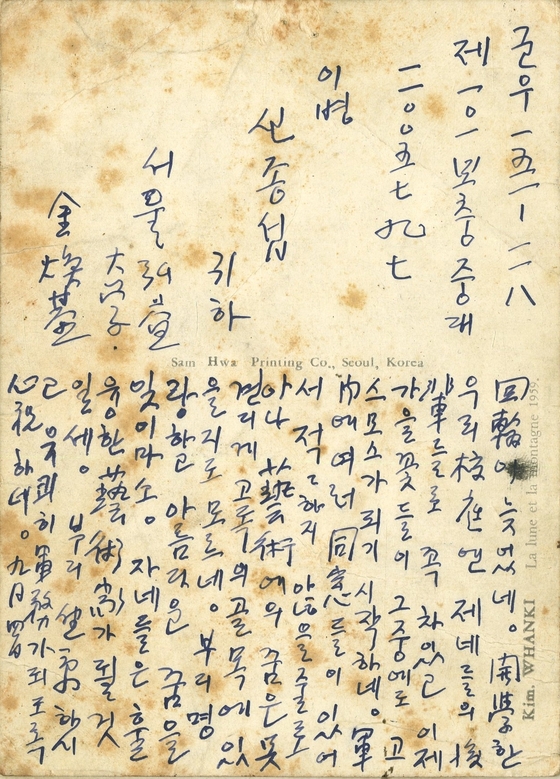 군우 一五一 ― 二八
제一〇一보충중대
二〇〇五七九七
이병
신종섭
귀하
서울 弘益
大学
金煥基
Sam Hwa Printing Co., Seoul, Korea
回翰이 늦었네。 開學한
우리 校庭엔 제네들의 後
輩들로 꼭 차있고 이제
가을꽃들이 그중에도 코
스모스가 되기 시작하네。 軍
內에 여러 同窓들이 있어
서 적적하지 않을줄로
아나 藝術에의 꿈은 못
견디게 고독의 골목에 있
을지도 모르네。 부디 명
랑하고 아름다운 꿈을
잊이마소。 자네들은 훌
융한 藝術家가 될 것
일세。 부디 하시
고 유쾌히 軍務가 되도록
心祝하네。 九月
Kim. WHANKI La lune et la montagne 1959.